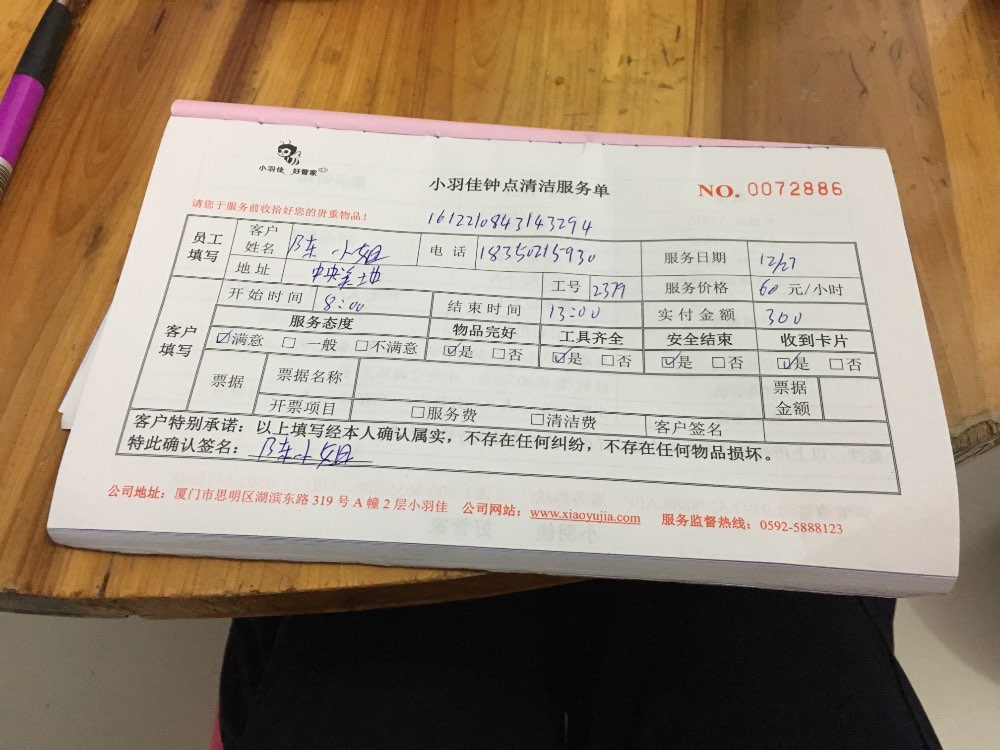 小羽佳 好管家
小羽佳钟点清洁服务单
NO. 0072886
请您于服务前收拾好您的贵重物品！
161221084314 3294
员工填写 客户姓名 陈小姐 电话 18350215930 服务日期 12/27
地址 中央美地 工号 2379 服务价格 60 元/小时
客户填写 开始时间 8:00 结束时间 13:00 实付金额 300
服务态度 物品完好 工具齐全 安全结束 收到卡片
☑满意 □一般 □不满意 ☑是 □否 ☑是 □否 ☑是 □否 ☑是 □否
票据 票据名称 票据金额
开票项目 □服务费 □清洁费 客户签名
客户特别承诺：以上填写经本人确认属实，不存在任何纠纷，不存在任何物品损坏。
特此确认签名：陈小姐
公司地址：厦门市思明区湖滨东路 319 号 A 幢 2 层小羽佳 公司网站：www.xiaoyujia.com 服务监督热线：0592-5888123